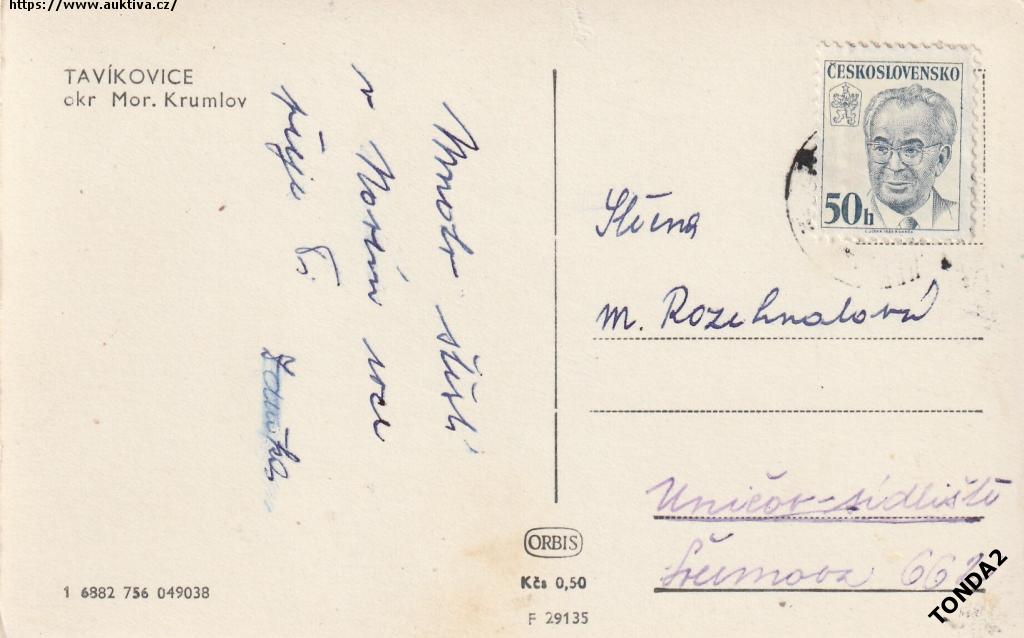 https://www.auktiva.cz/
TAVÍKOVICE
okr Mor. Krumlov
Mnoho štěstí
v Novém roce
přeje Ti
ČESKOSLOVENSKO
50h
Slečna
M. Rozehnalová
Uničov-sídliště
662
ORBIS
Kčs 0,50
F 29135
1 6882 756 049038
TONDA2